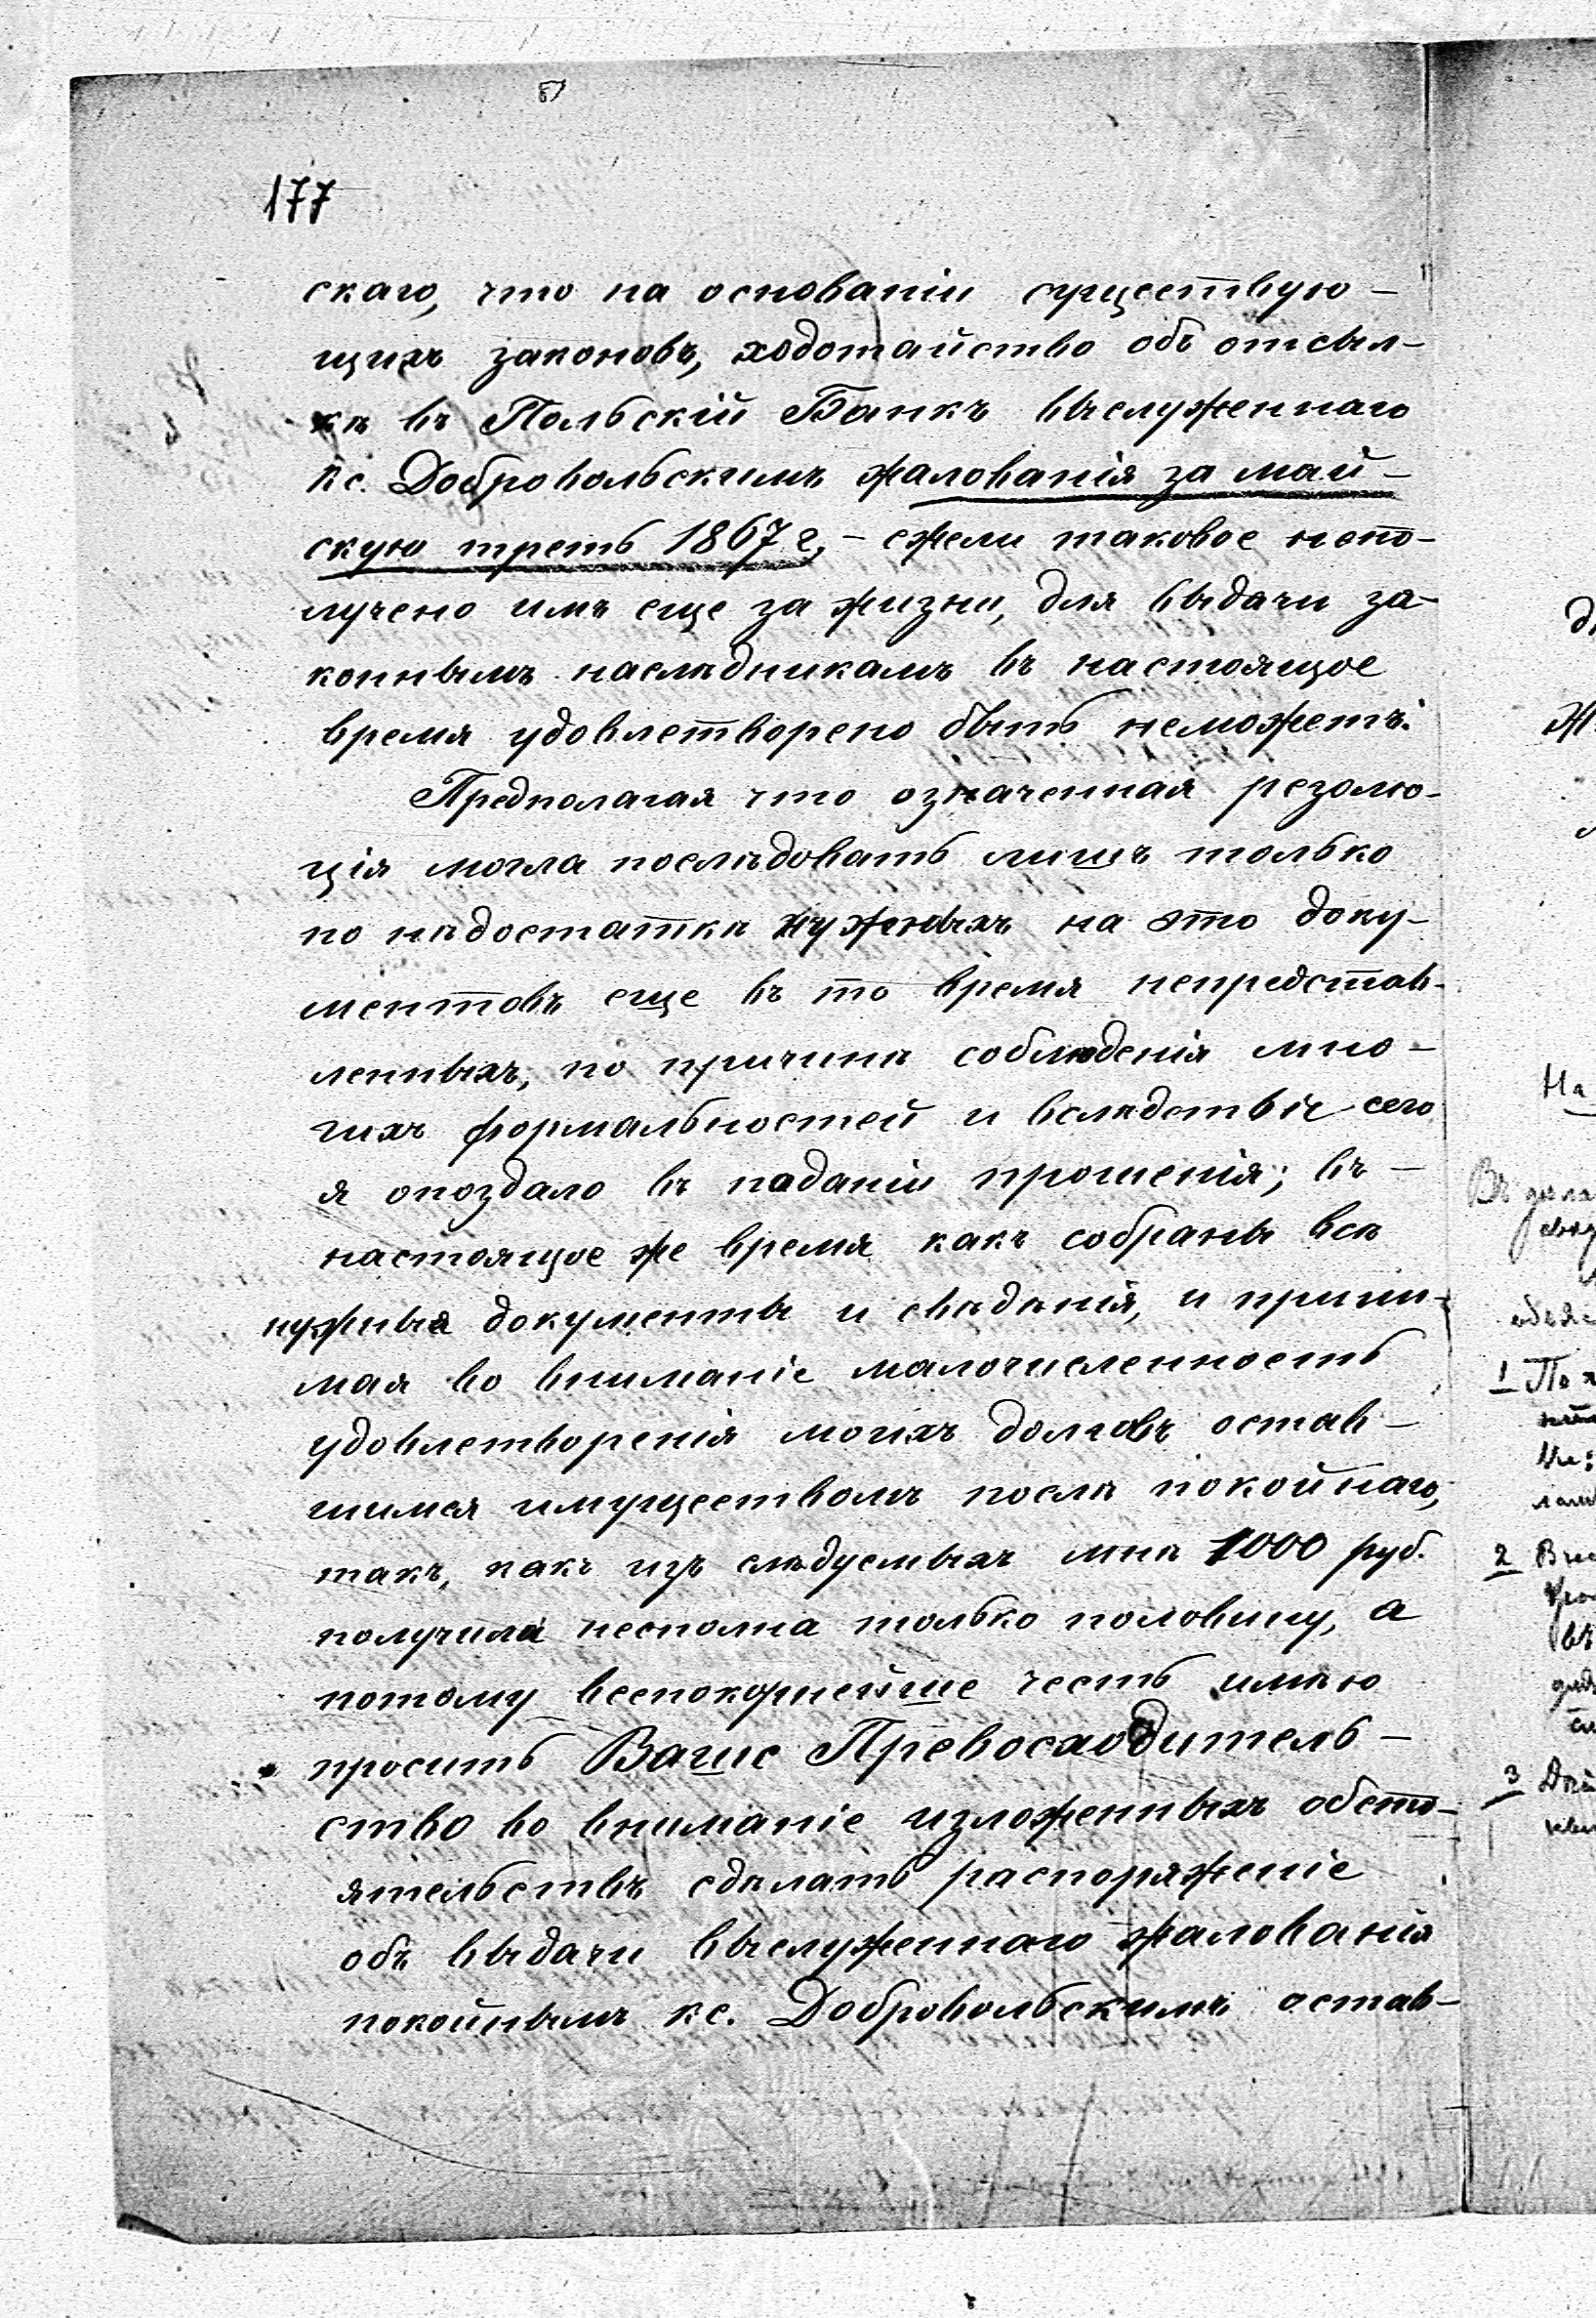 177
скаго, что на основаніи существую-
щихъ законовъ, ходотайство объ отсыл-
кѣ въ Польскій Банкъ выслуженнаго
кс. Добровольскимъ жалованія за май-
скую треть 1867 г, - ежели таковое непо-
лучено имъ еще за жизни, для выдачи за-
коннымъ наслѣдникамъ въ настоящое
время удовлетворено быть неможетъ.
Предполагая что означенная резолю-
ція могла послѣдовать лишъ только
по нѣдостаткѣ нужныхъ на это доку-
ментовъ еще въ то время непредстав-
ленныхъ, по причинѣ соблюденія мно-
гихъ формальностей и вслѣдствіе сего
я опоздало въ поданіи прошенія; въ -
настоящое же время какъ собраны всѣ
нужныя документы и свѣдѣнія, и прини-
мая во вниманіе малочисленность
удовлетворенія моихъ долговъ остав-
шимся имуществомъ послѣ покойнаго,
такъ, какъ изъ слѣдуемыхъ мнѣ 1000 руб.
получила несполна только половину, а
потому всепокорнейше честь имѣю
просить Ваше Превосходитель-
ство во вниманіе изложенныхъ обсто-
ятельствъ сдѣлать распоряженіе
объ выдачи выслуженнаго жалованія
покойнымъ кс. Добровольскимъ остав-
На
1 По
2
3